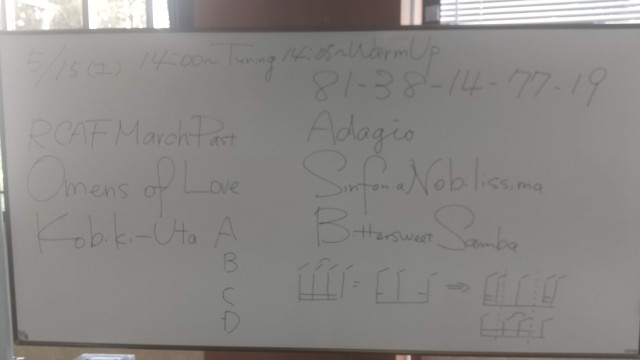 5/15(土) 14:00~Tuning 14:05~WarmUp
81-38-14-77-19
RCAF MarchPast
Adagio
Omens of Love
Sinfonia Nobilissima
Kobiki-Uta A
B
C
D
Bittersweet Samba